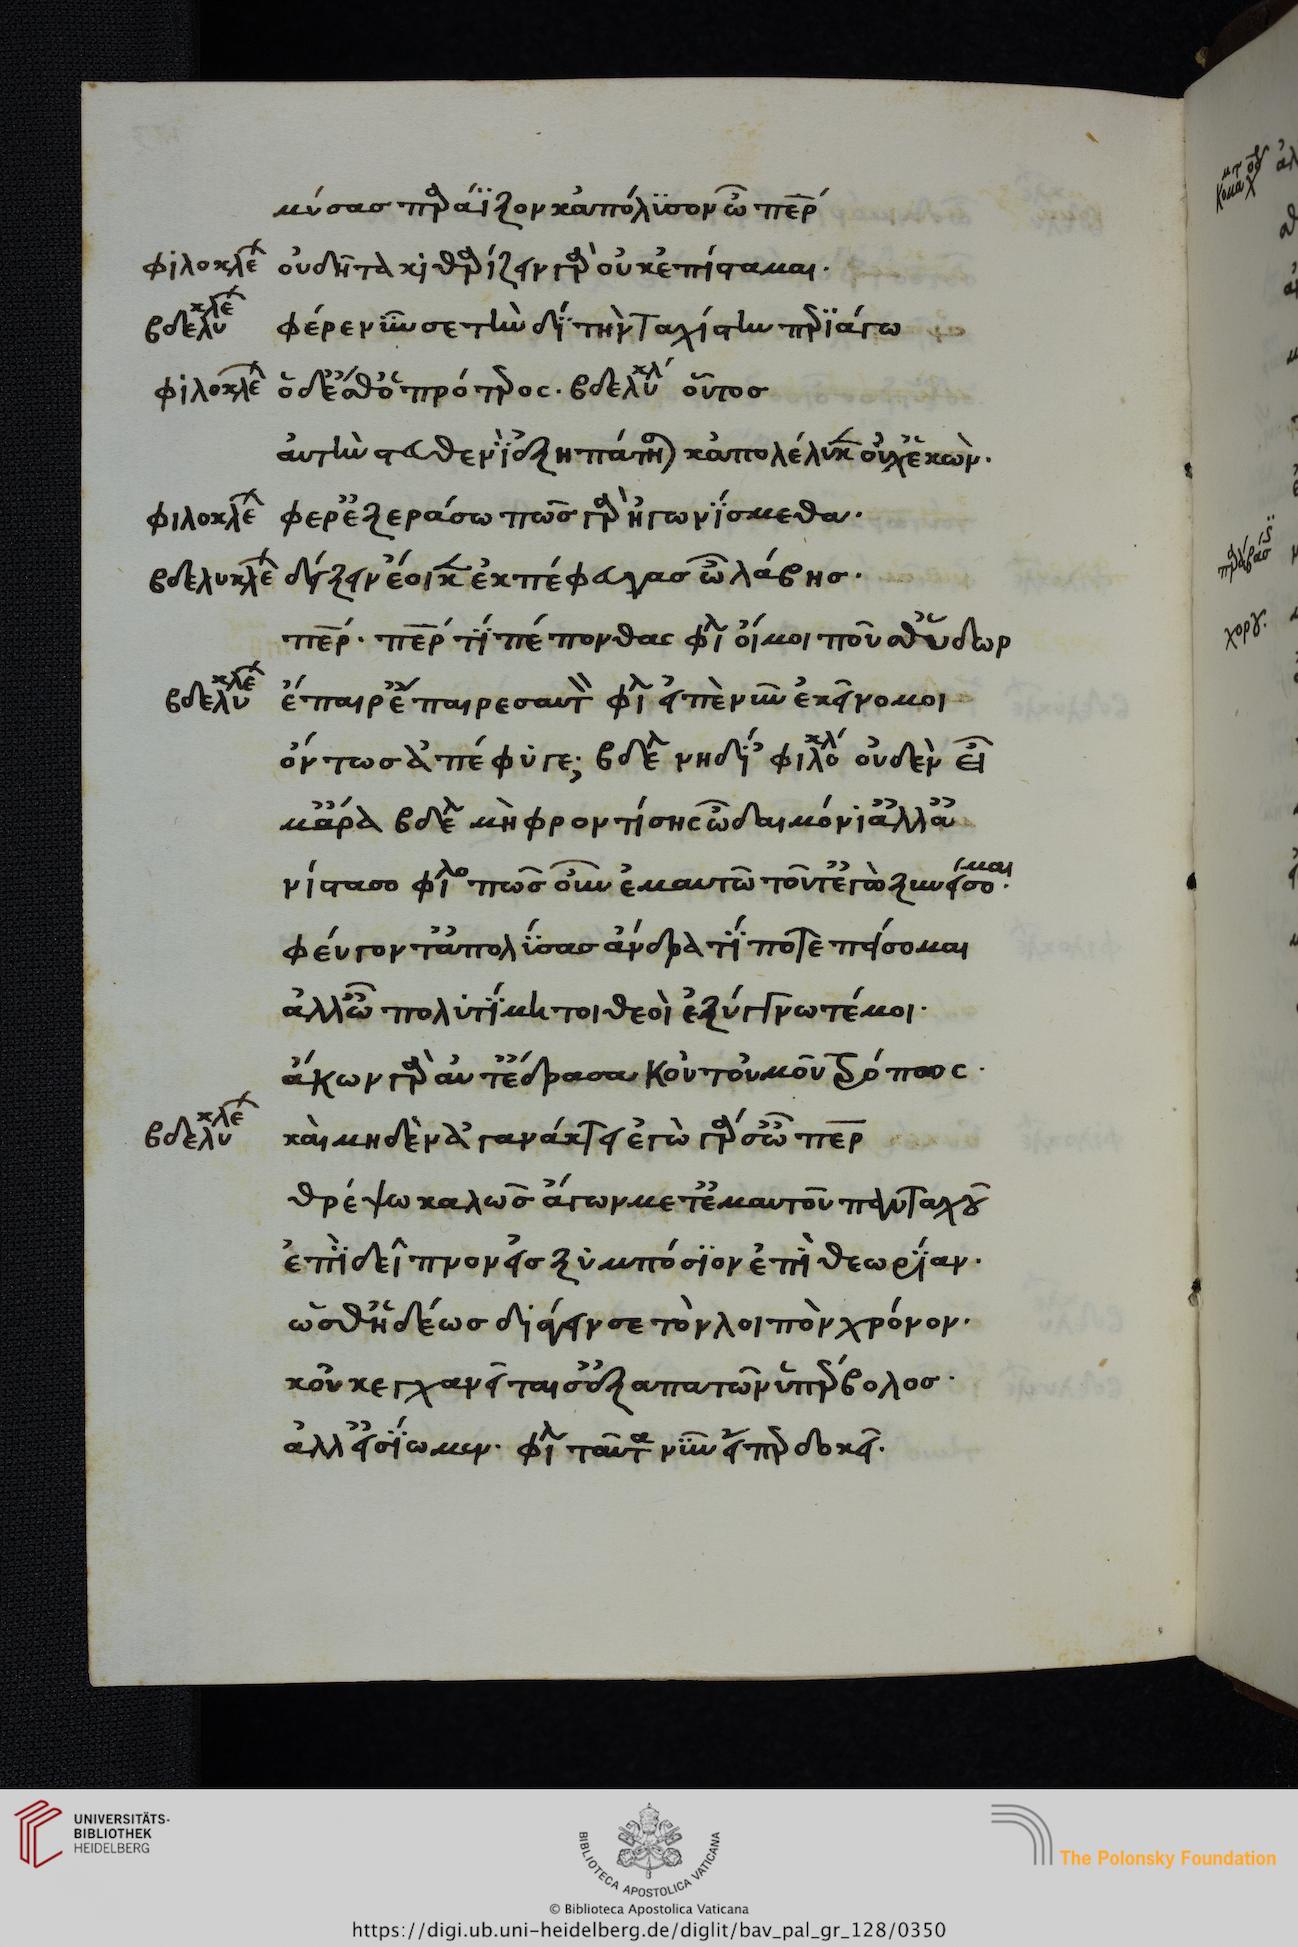 μύσας παράϊξον κἀπόλϊσον ὦ πάτερ
φιλοκλέ οὐδῆτα κιθαρίζειν γὰρ οὐκ ἐπίσταμαι.
βδελυκλέ φέρε νῦν σε τὴν δΐ τὴν ταχίστην περϊάγω
φιλοκλέ ὅδε ἄθ ὁ πρότερος. βδελυκλέ οὗτος
αὐτὴν ταυθενῒ ὀξηπάτηται κἀπολέλυκεν οὐχ ἑκών.
φιλοκλέ φερ ἐξεράσω πῶς γὰρ ἠγωνΐσμεθα.
βδελυκλέ δείξειν ἔοικεν ἐκπέφευγας ὦ λάβης.
πάτερ. πάτερ τΐ πέπονθας φιλ οἴμοι ποῦ σθ ὕδωρ
βδελυκλέ ἔπαιρ ἔπαιρε σαυτὸν φιλ εἰπὲ νῦν ἐκεῖνο μοι
ὄντως ἀπέφυγε; βδελ νηδί φιλοκλ οὐδὲν εἰμ
ἄρα βδελ μὴ φροντίσης ὦ δαιμόνι ἀλλ ἀ
νίστασο φιλο πῶς οὖν ἐμαυτῶ τοῦτ ἐγὼ ξυνείσομαι.
φεύγοντ ἀπολΐσας ἄνδρα τΐ ποτε πείσομαι
ἀλλ ὦ πολυτΐμητοι θεοὶ ξύγγνωτέ μοι.
ἄκων γὰρ αὐτ ἔδρασα κοὐ τοὐμοῦ τρόπους.
βδελυκλέ καὶ μηδὲν ἀγανάκτει ἐγὼ γάρ σ ὦ πάτερ
θρέψω καλῶς ἄγων μετ ἐμαυτοῦ πανταχοῦ
ἐπῒ δεῖπνον εἰς ξυμπόσϊον ἐπῒ θεωρΐαν.
ὥσθ ἡδέως διάγειν σε τὸν λοιπὸν χρόνον.
κοὐκ ἐγχανεῖται σ ἐξαπατῶν ὑπέρβολος.
ἀλλ εἰσΐωμεν. φιλ ταῦτα νῦν εἴπερ δοκεῖ.
UNIVERSITÄTS-
BIBLIOTHEK
HEIDELBERG
BIBLIOTECA APOSTOLICA VATICANA
© Biblioteca Apostolica Vaticana
The Polonsky Foundation
https://digi.ub.uni-heidelberg.de/diglit/bav_pal_gr_128/0350